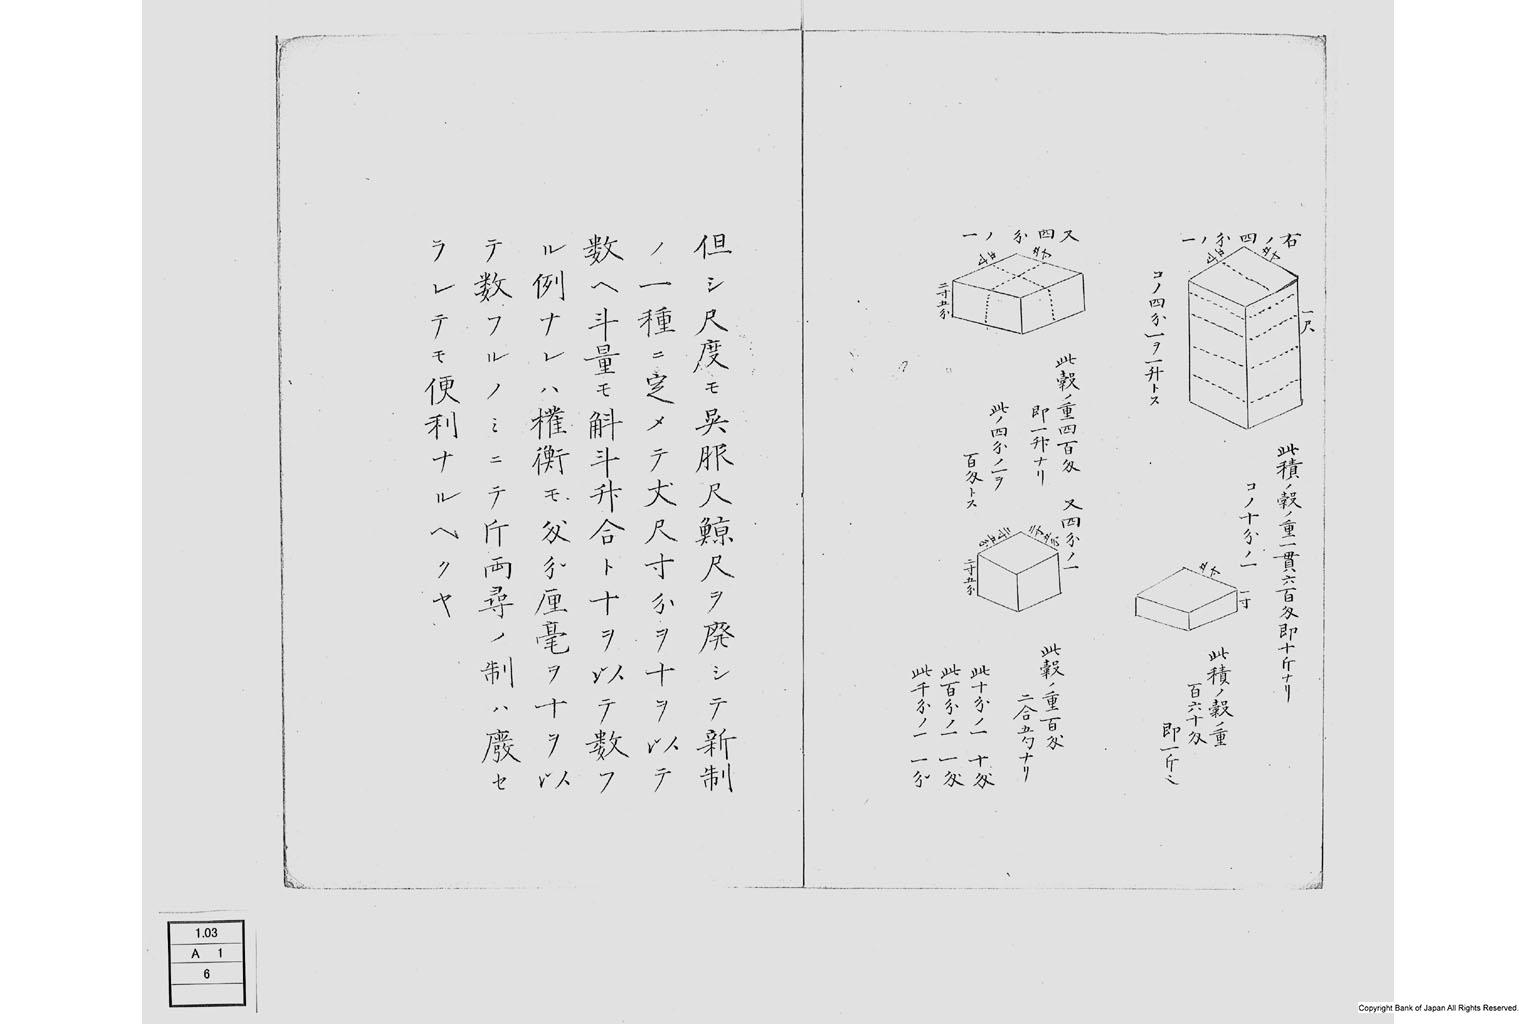 右ノ四分ノ一
五寸
五寸
一尺
コノ四分一ヲ一升トス
此積ノ穀ノ重一貫六百匁即十斤ナリ
コノ十分ノ一
五寸
一寸
此積ノ穀ノ重
百六十匁
即一斤也
又四分ノ一
五寸
五寸
二寸五分
此穀ノ重四百匁
即一升ナリ
此ノ四分ノ一ヲ
百匁トス
又四分ノ一
二寸五分
二寸五分
二寸五分
此穀ノ重百匁
二合五勺ナリ
此十分ノ一 十匁
此百分ノ一 一匁
此千分ノ一 一分
但シ尺度モ呉服尺鯨尺ヲ廃シテ新制
ノ一種ニ定メテ丈尺寸分ヲ十ヲ以テ
数ヘ斗量モ斛斗升合ト十ヲ以テ数フ
ル例ナレハ権衡モ匁分厘毫ヲ十ヲ以
テ数フルノミニテ斤両尋ノ制ハ廃セ
ラレテモ便利ナルヘクヤ
1.03
A 1
6
Copyright Bank of Japan All Rights Reserved.